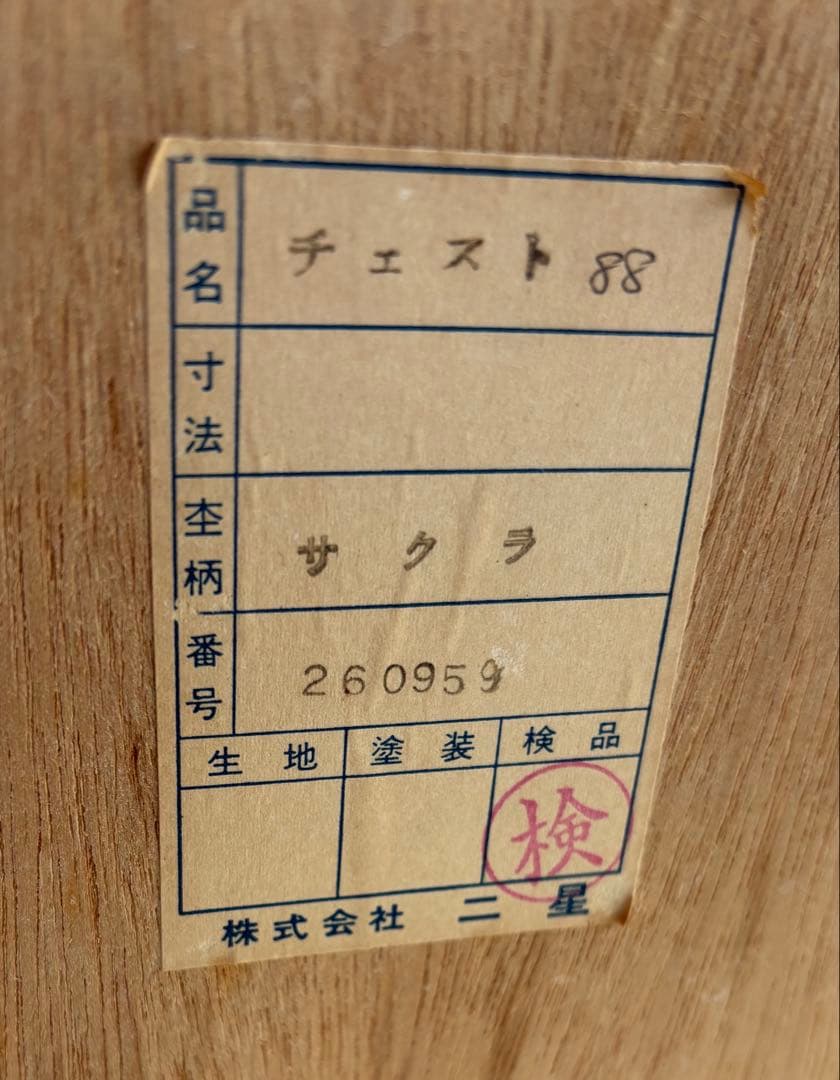 品名 チェスト 88
寸法
杢柄 サクラ
番号 260959
生地 塗装 検品
検
株式会社 二星